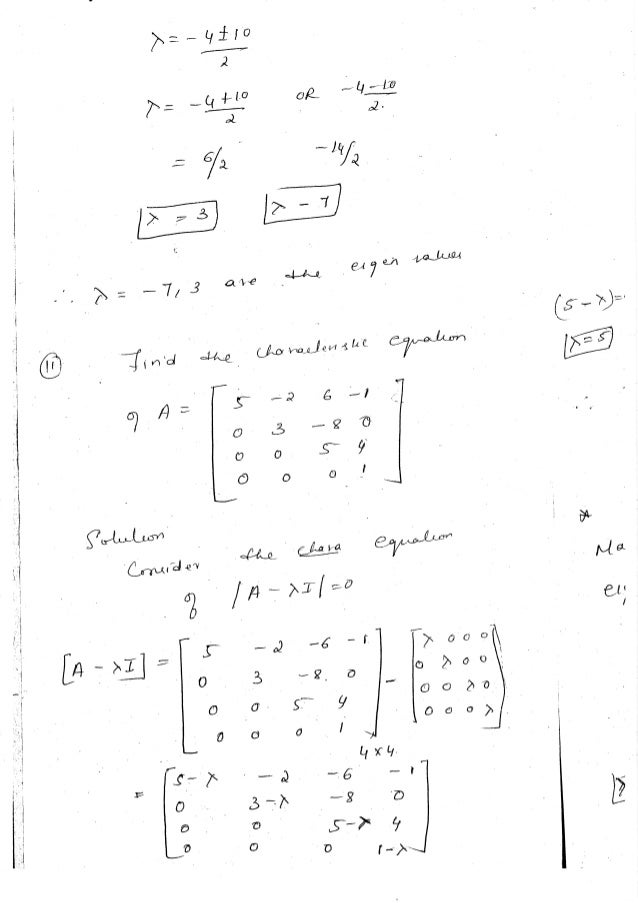 λ = -4±10
2
λ = -4+10 OR -4-10
2 2.
= 6/2 -14/2
λ = 3 λ - 7
∴ λ = -7, 3 are the eigen values
(5-λ)=
λ=5
(11) Find the characteristic equation
of A = [ 5 -2 6 -1
0 3 -8 0
0 0 5 4
0 0 0 1 ]
∴
Solution
Consider the chara equation
of |A - λI| = 0
*
Ma
ei
[A - λI] = [ 5 -2 -6 -1 ] - [ λ 0 0 0 ]
0 3 -8. 0 0 λ 0 0
0 0 5 4 0 0 λ 0
0 0 0 1 0 0 0 λ
4×4
= [ 5-λ -2 -6 -1
0 3-λ -8 0
0 0 5-λ 4
0 0 0 1-λ ]